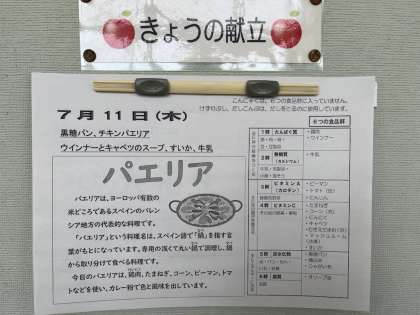 きょうの献立
こんにゃくは、6つの食品群に入っていません。
けずりぶし、だしこんぶは、だしをとるのに使用しています。
7月11日(木)
黒糖パン、チキンパエリア
ウインナーとキャベツのスープ、すいか、牛乳
パエリア
パエリアは、ヨーロッパ有数の
米どころであるスペインのバレン
シア地方の代表的な料理です。
「パエリア」という料理名は、スペイン語で「鍋」を指す言
葉がもとになっています。専用の浅くて丸い鍋で調理し、鍋
から取り分けて食べる料理です。
今日のパエリアは、鶏肉、たまねぎ、コーン、ピーマン、トマ
トなどを使い、カレー粉で色と風味を出しています。
6つの食品群
1群 たんぱく質
・鶏肉
・ウインナー
2群 無機質
(カルシウム)
・牛乳
3群 ビタミンA
(カロテン)
・ピーマン
・トマト
・にんじん
4群 ビタミンC
・たまねぎ
・コーン
・にんにく
・キャベツ
・マッシュルーム
・すいか
5群 炭水化物
・黒糖パン
・じゃがいも
6群 脂質
・オリーブ油